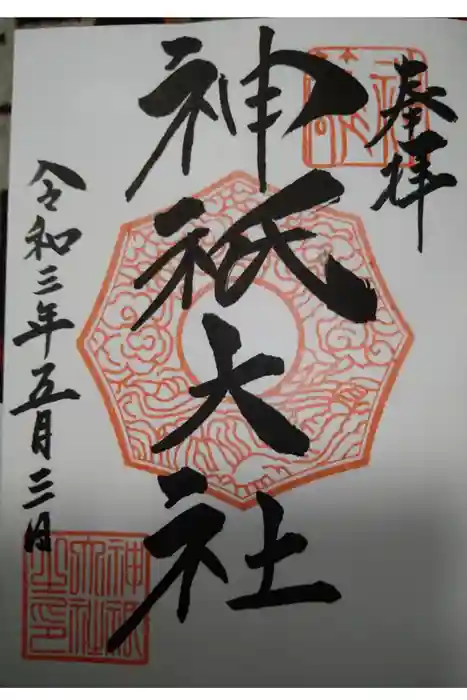 奉拝
神祇大社
令和三年五月三日
神祇大社之印